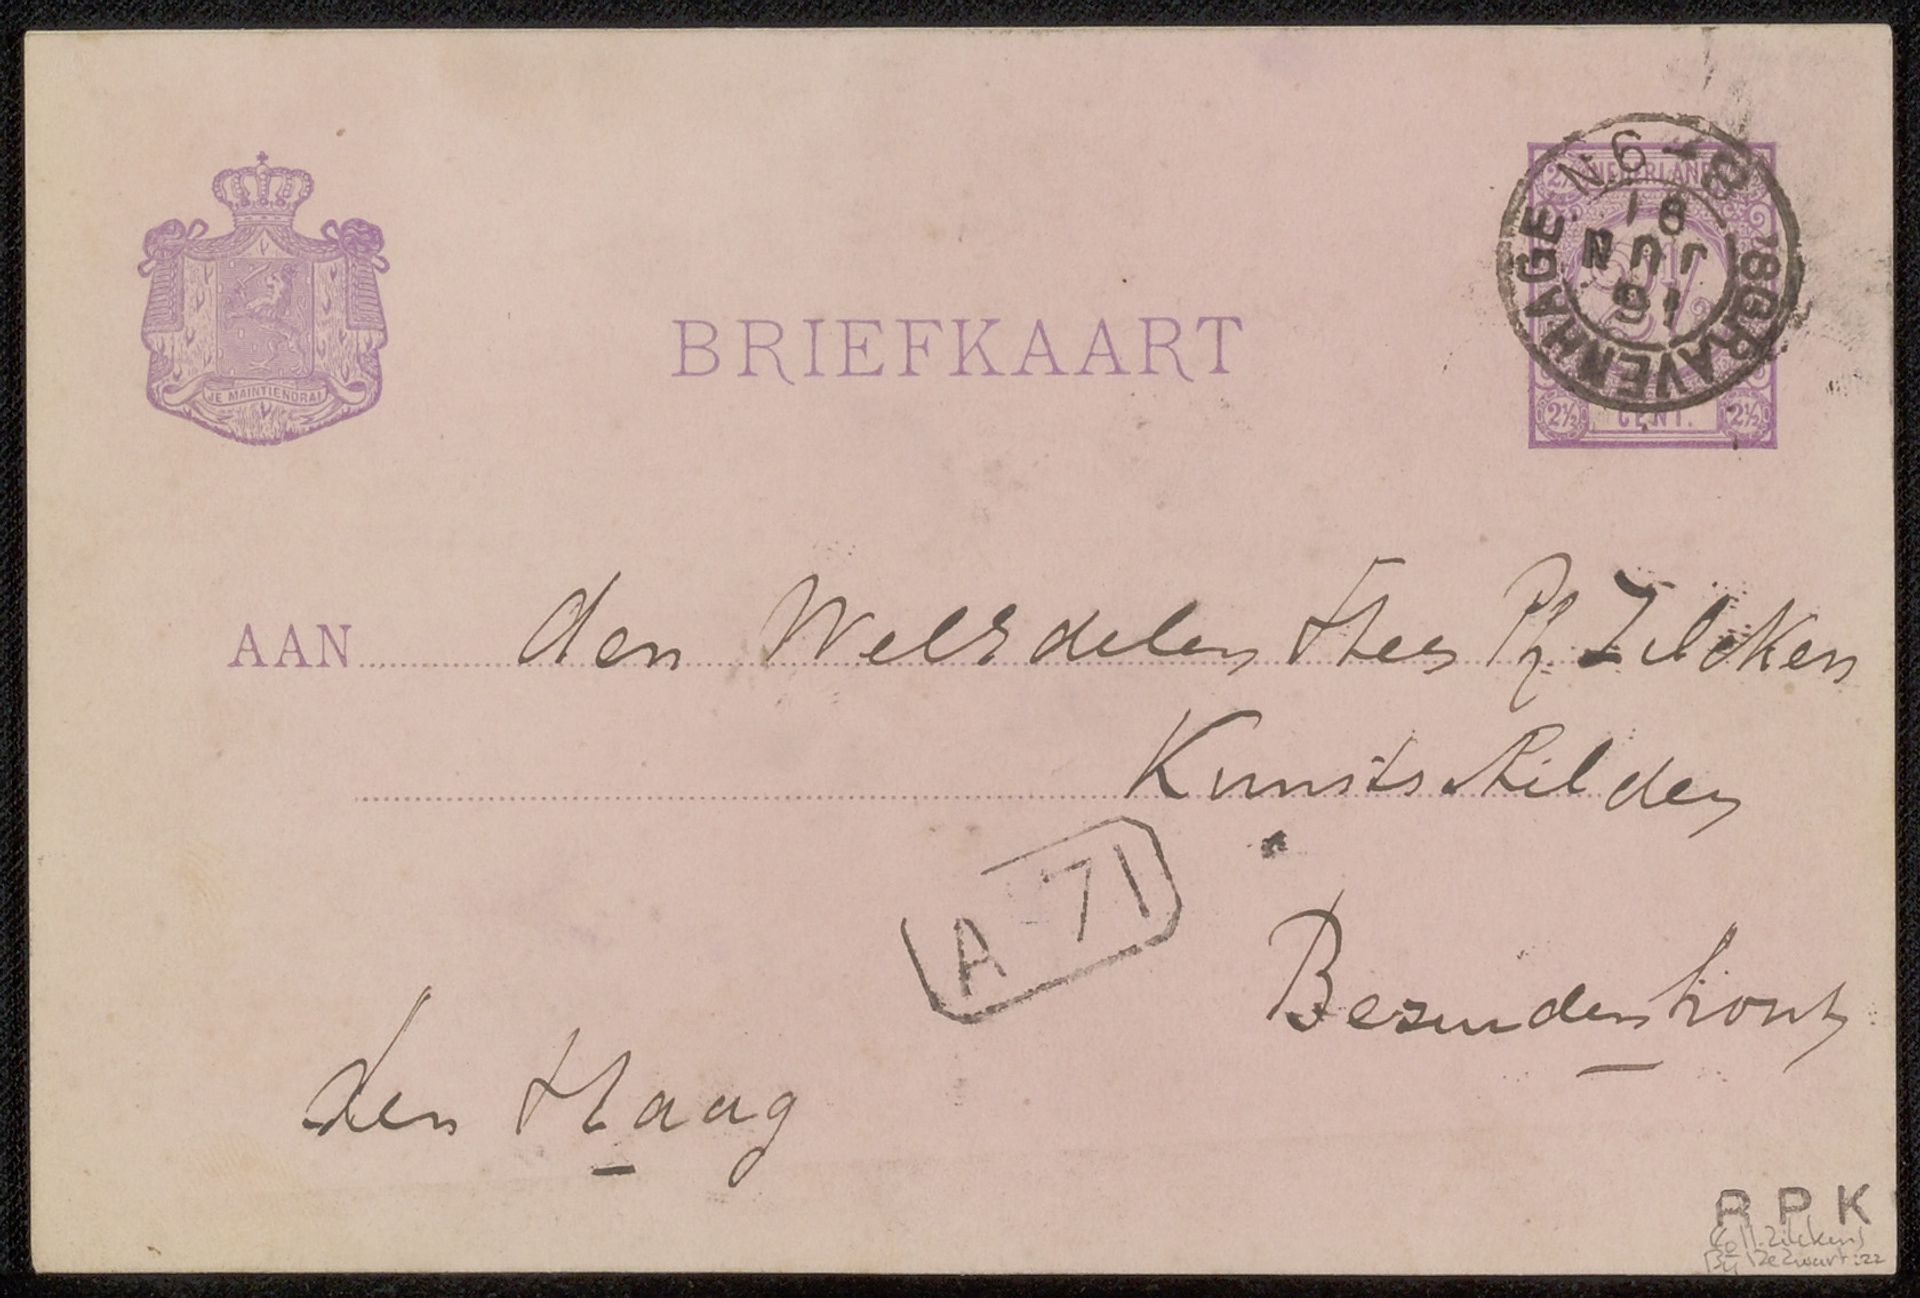 NEDERLAND
'SGRAVENHAGE. N. 6 - 8
18
JUN
91
JE MAINTIENDRAI
BRIEFKAART
2½ CENT. 2½
AAN den WelEdelen Heer Ph Zilcken
Kunstschilder
A 71
Bezuidenhout
den Haag
RPK
Coll. Zilcken
De Zwart : 22